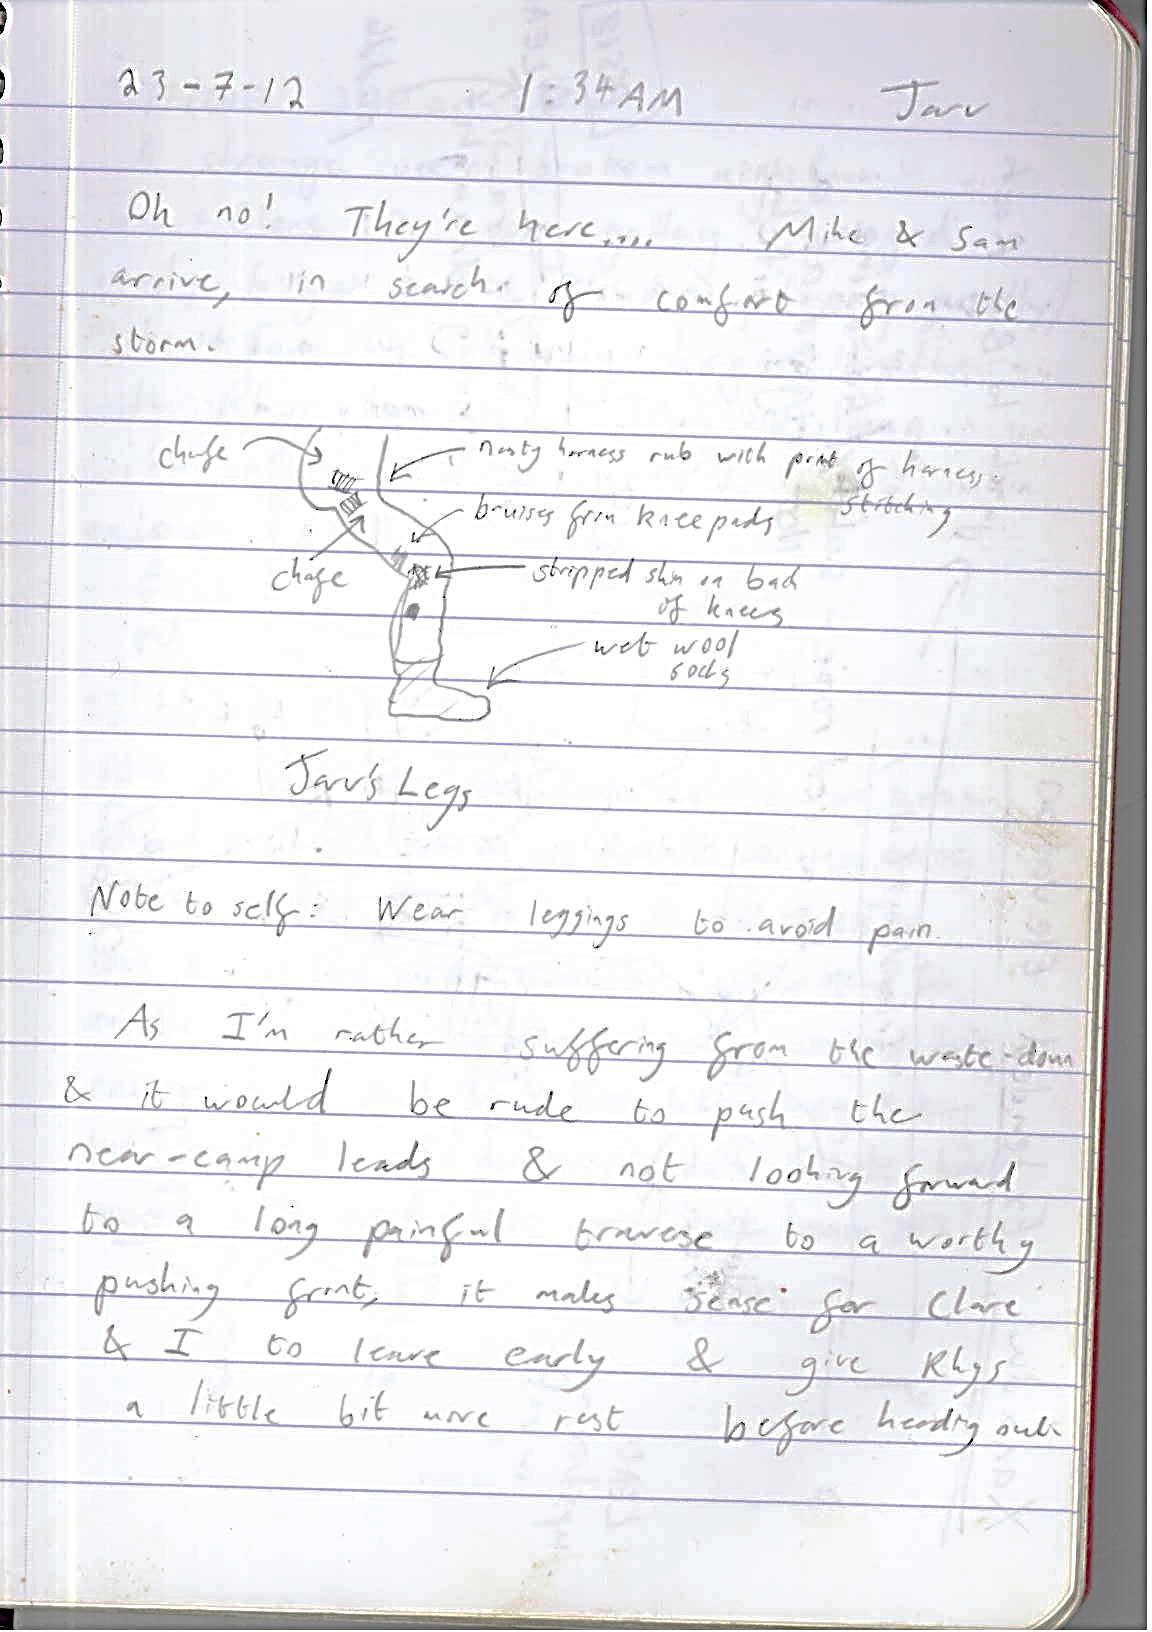 23-7-12 1:34AM Jarv
Oh no! They're here.... Mike & Sam
arrive, in search of comfort from the
storm.
chafe
nasty harness rub with print of harness
stitching
bruises from kneepads
chafe
stripped skin on back
of knees
wet wool
socks
Jarv's Legs
Note to self: Wear leggings to avoid pain.
As I'm rather suffering from the waste-down
& it would be rude to push the
near-camp leads & not looking forward
to a long painful traverse to a worthy
pushing front, it makes sense for Clare
& I to leave early & give Rhys
a little bit more rest before heading out.